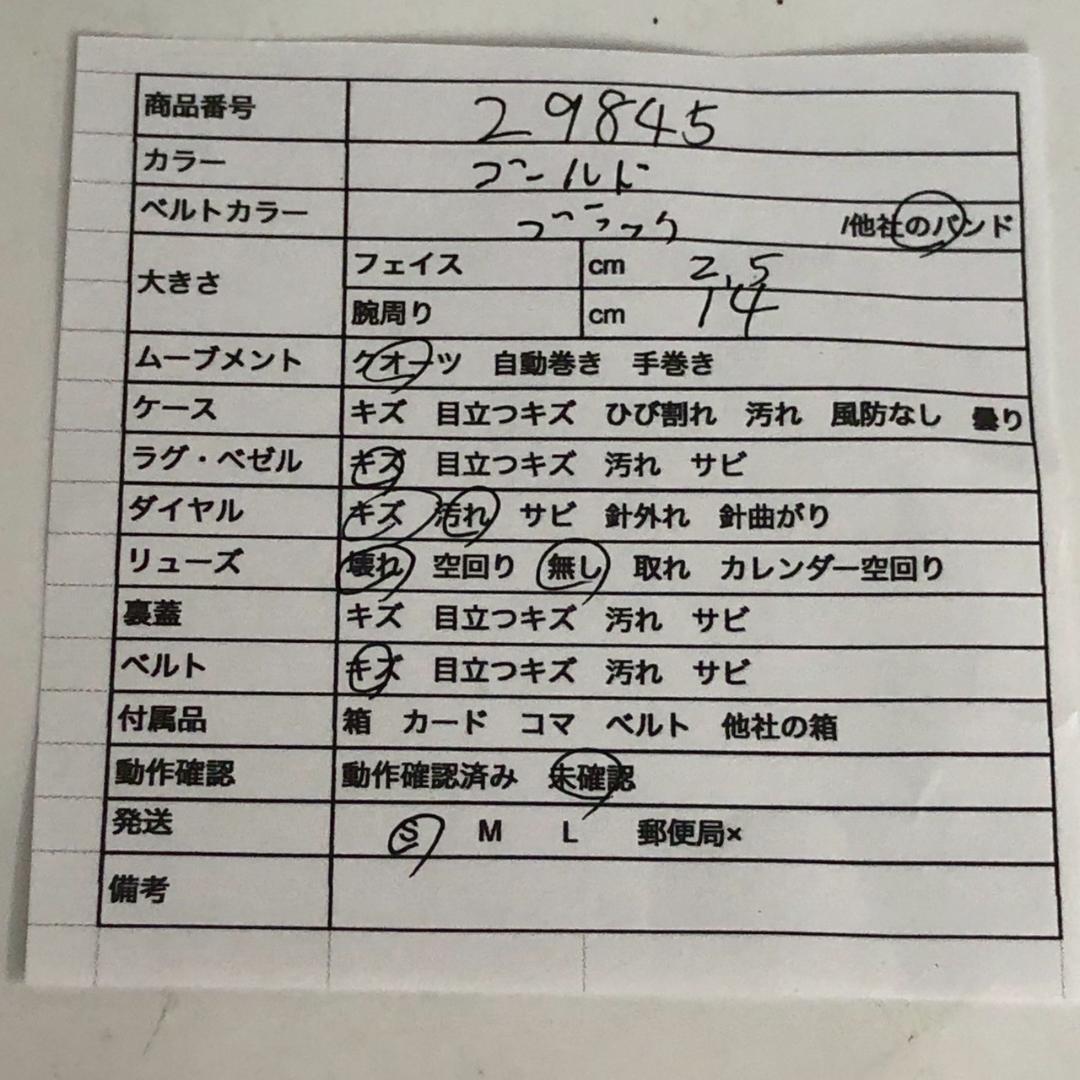 商品番号 29845
カラー ゴールド
ベルトカラー ブラック /他社のバンド
大きさ フェイス cm 2.5
腕周り cm 14
ムーブメント クオーツ 自動巻き 手巻き
ケース キズ 目立つキズ ひび割れ 汚れ 風防なし 曇り
ラグ・ベゼル キズ 目立つキズ 汚れ サビ
ダイヤル キズ 汚れ サビ 針外れ 針曲がり
リューズ 壊れ 空回り 無し 取れ カレンダー空回り
裏蓋 キズ 目立つキズ 汚れ サビ
ベルト キズ 目立つキズ 汚れ サビ
付属品 箱 カード コマ ベルト 他社の箱
動作確認 動作確認済み 未確認
発送 S M L 郵便局×
備考